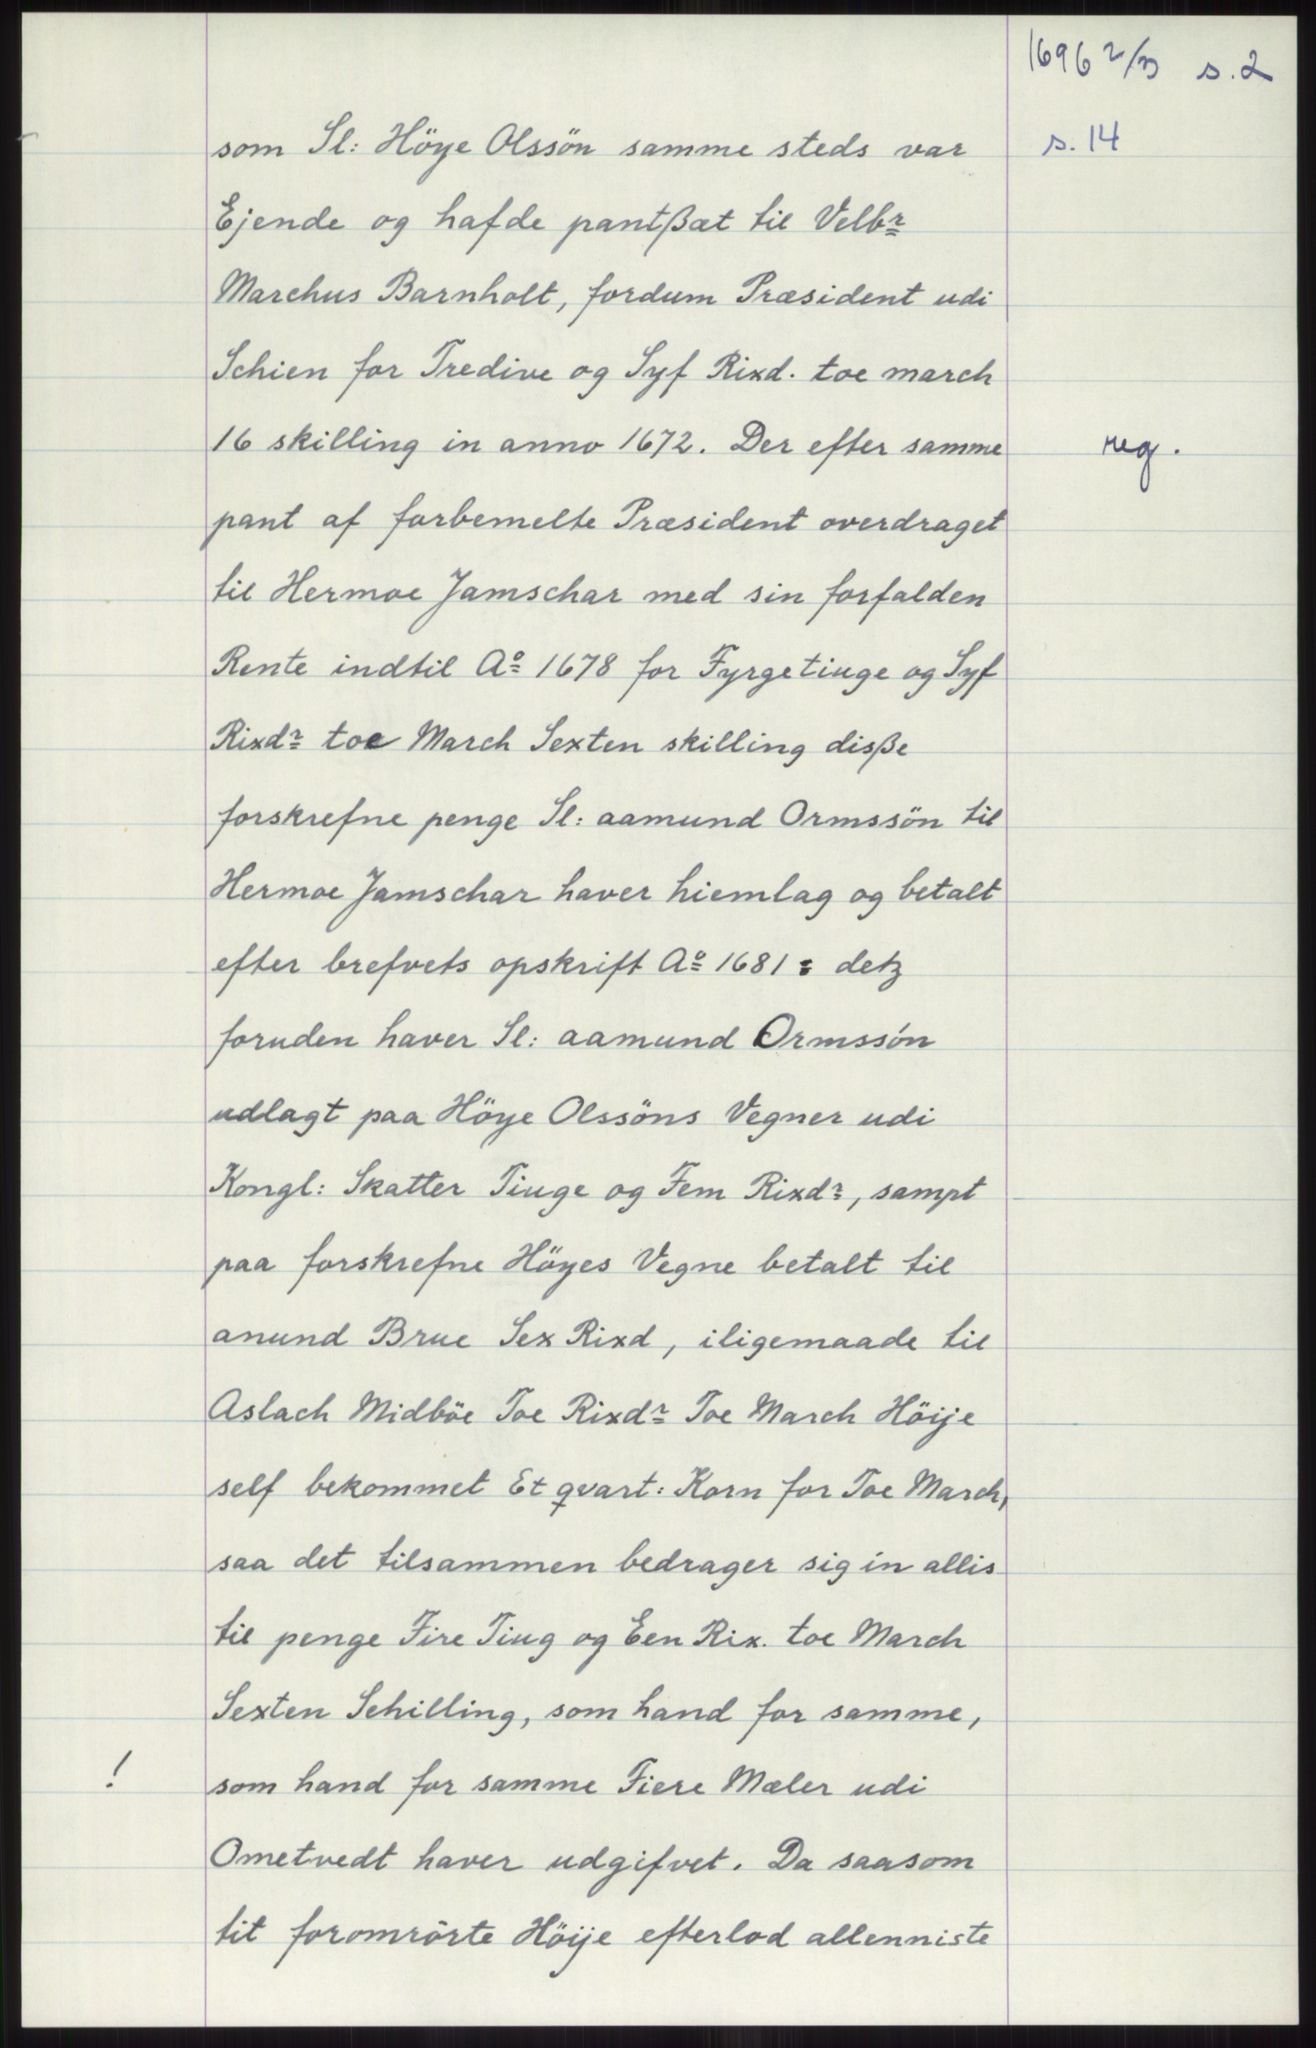 1696 2/3 s. 2
som Sl: Höye Olssön samme steds var s. 14
Ejende og hafde pantßæt til Velbr
Marchus Barnholt, fordum Præsident udi
Schien for Tredive og Syf Rixd. toe march
16 skilling in anno 1672. Der efter samme reg.
pant af forbemelte Præsident overdraget
til Hermoe Jamschar med sin forfalden
Rente indtil Ao 1678 for Fyrgetiuge og Syf
Rixdr toe March Sexten skilling disße
forskrefne penge Sl: aamund Ormssön til
Hermoe Jamschar haver hiemlag og betalt
efter brefvets opskrift Ao 1681 : detz
foruden haver Sl: aamund Ormssön
udlagt paa Höye Olssöns Vegner udi
Kongl: Skatter Tiuge og Fem Rixdr, sampt
paa forskrefne Höyes Vegne betalt til
anund Brue Sex Rixd, iligemaade til
Aslach Midböe Toe Rixdr Toe March Höije
self bekommet Et qvart: Korn for Toe March,
saa det tilsammen bedrager sig in allis
til penge Fire Tiug og Een Rix. toe March
Sexten Schilling, som hand for samme,
! som hand for samme Fiere Mæler udi
Ometvedt haver udgifvet. Da saasom
tit foromrörte Höije efterlod allenniste